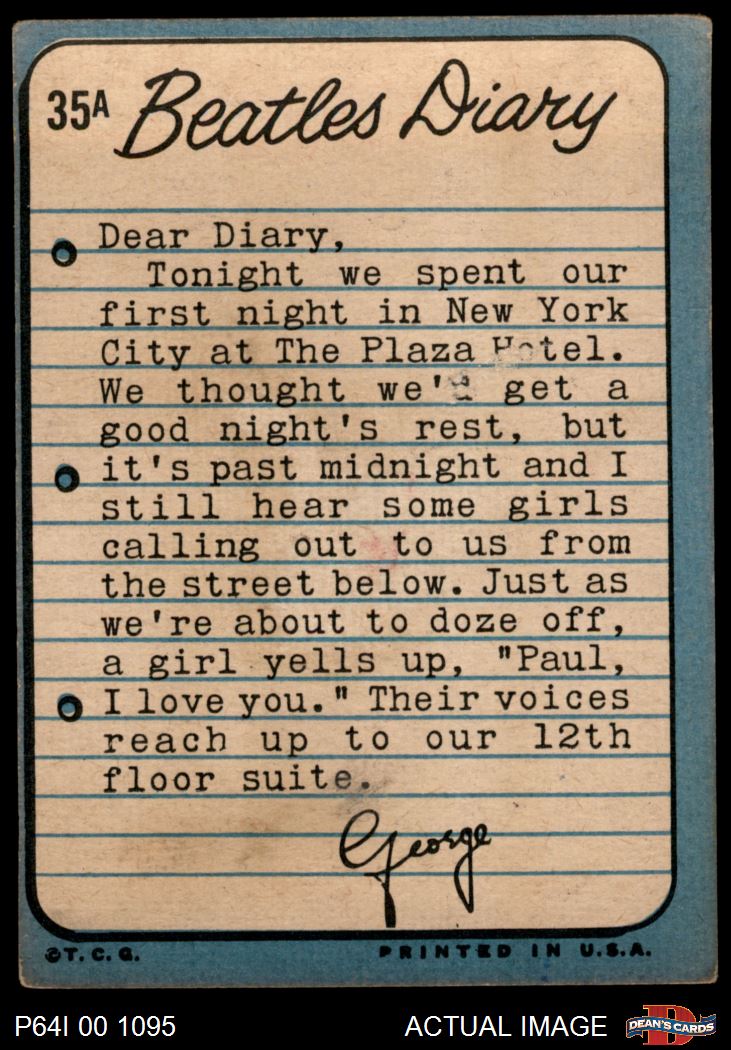 35A Beatles Diary
Dear Diary,
Tonight we spent our
first night in New York
City at The Plaza Hotel.
We thought we'd get a
good night's rest, but
it's past midnight and I
still hear some girls
calling out to us from
the street below. Just as
we're about to doze off,
a girl yells up, "Paul,
I love you." Their voices
reach up to our 12th
floor suite.
George
©T.C.G. PRINTED IN U.S.A.
P64I 00 1095 ACTUAL IMAGE DEAN'S CARDS